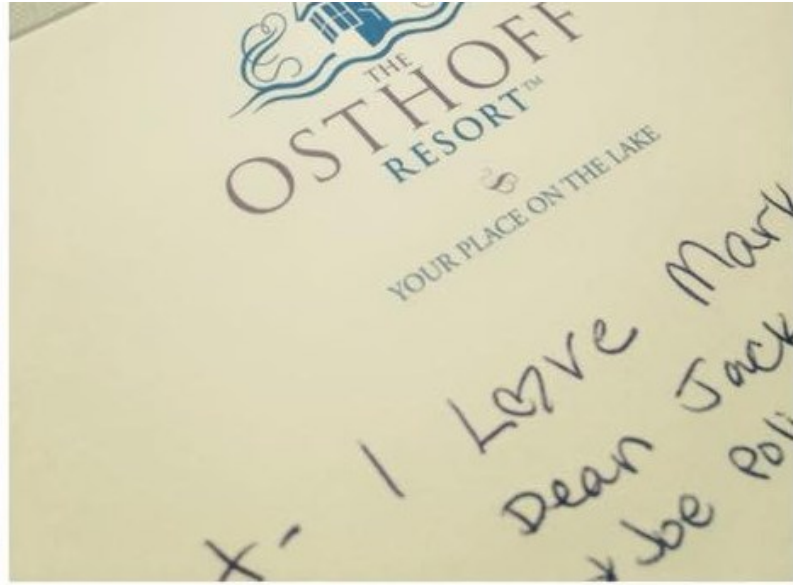 THE
OSTHOFF
RESORT™
YOUR PLACE ON THE LAKE
x- I Love Mark
Dean Jack
Joe Poli